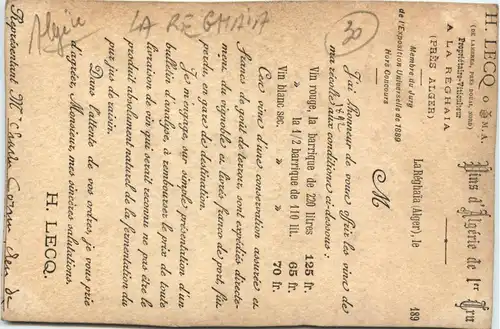 Algérie
LA REGHAIA
30
H. LECQ O. M. A.
(DE LANDRES, PRÈS DOUAI, NORD)
Propriétaire-Viticulteur
A LA REGHAIA
(PRÈS ALGER)
Membre du Jury
de l'Exposition Universelle de 1889
Hors Concours
Vins d'Algérie de 1er Cru
La Reghaïa (Alger), le 189
M
J'ai l'honneur de vous offrir les vins de
ma récolte 1892 aux conditions ci-dessous :
Vin rouge, la barrique de 220 litres 125 fr.
" la 1/2 barrique de 110 lit. 65 fr.
Vin blanc sec. " " 70 fr.
Ces vins d'une conservation assurée et
francs de goût de terroir, sont expédiés directe-
ment du vignoble et livrés franco de port, fût
perdu, en gare de destination.
Je m'engage, sur simple présentation d'un
bulletin d'analyse, à rembourser le prix de toute
livraison de vin qui serait reconnu ne pas être le
produit absolument naturel de la fermentation du
pur jus de raisin.
Dans l'attente de vos ordres, je vous prie
d'agréer, Monsieur, mes sincères salutations.
H. LECQ.
Représentant Mr Charles